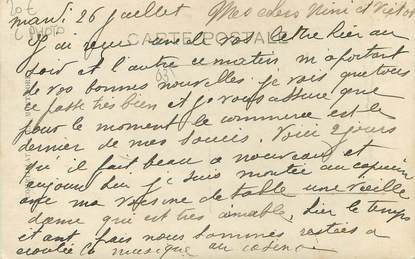 20€
CPHOTO
mardi 26 juillet Mes chers Nini et Victor
CARTE POSTALE
J'ai reçu une de vos lettre hier au
soir et l'autre ce matin m'apportant
de vos bonnes nouvelles je vois que tout
ce passe très bien et je vous assure que
pour le moment le commerce est le
dernier de mes soucis. Voici 2 jours
qu'il fait beau a nouveau et
aujourd'hui je suis montée au capucin
avec ma voisine de table une vieille
dame qui est très aimable, hier le temps
étant frais nous sommes restées a
écouter la musique au casino